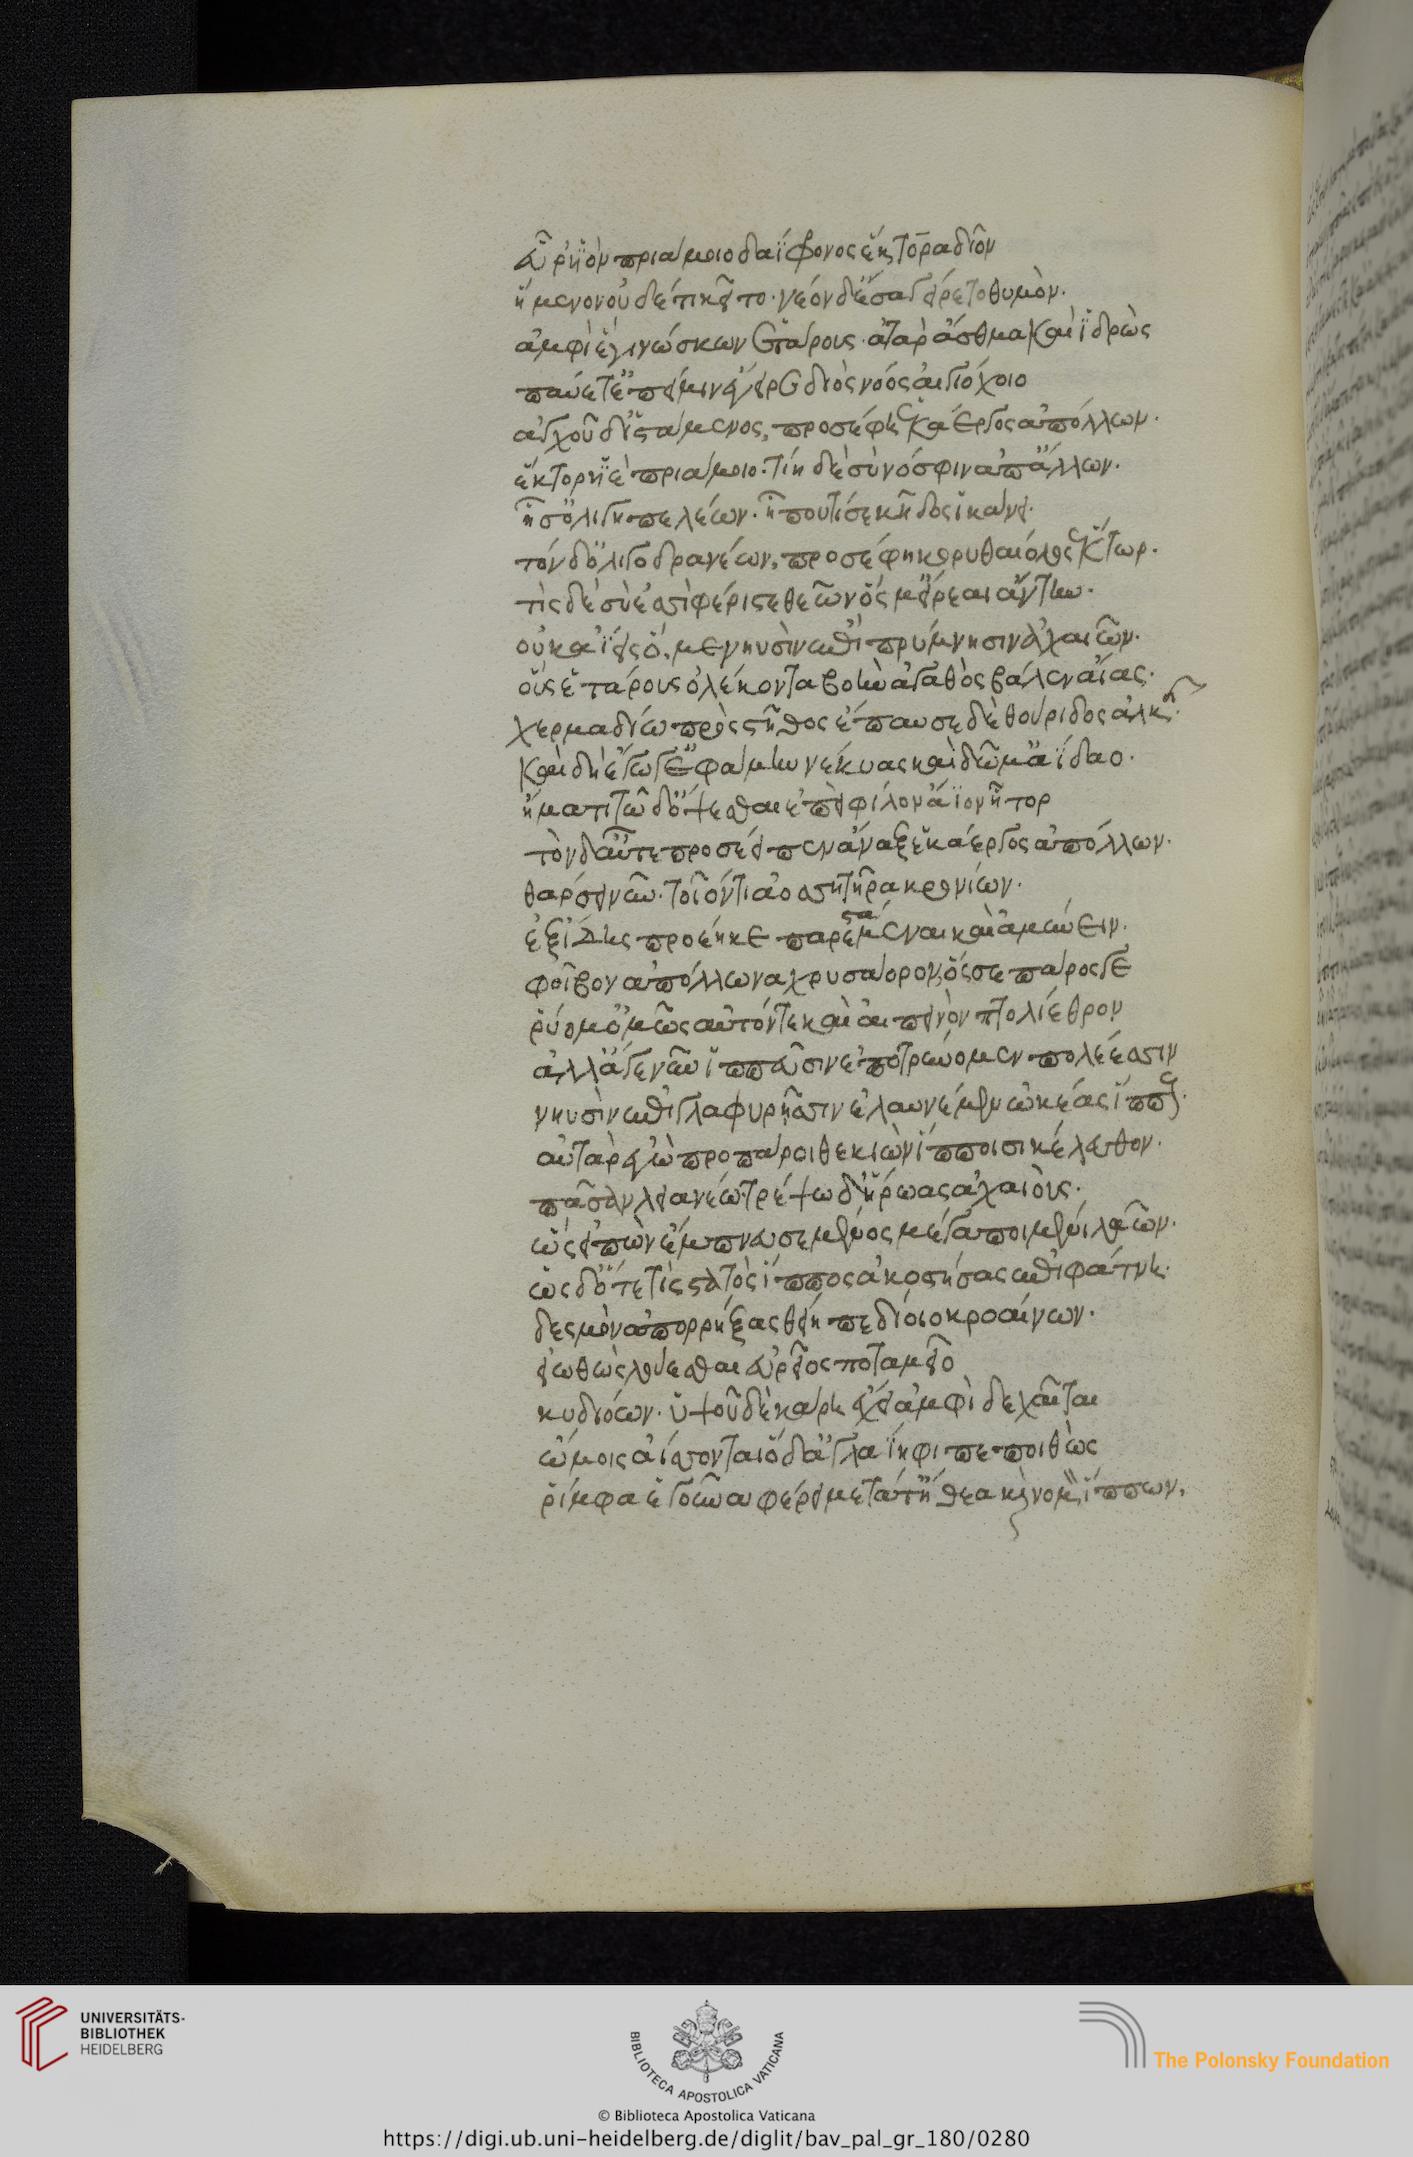 εὗρ' υἱὸν πριάμοιο δαΐφρονος ἕκτορα δῖον
ἥμενον οὐδ' ἔτι κεῖτο· νέον δ' ἐσαγείρετο θυμὸν.
ἀμφὶ ἓ γινώσκων ἑταίρους· ἀτὰρ ἆσθμα καὶ ἱδρὼς
παύετ' ἐπεί μιν ἔγειρε διὸς νόος αἰγιόχοιο
ἀγχοῦ δ' ἱστάμενος, προσέφη ἑκάεργος ἀπόλλων.
ἕκτορ υἱὲ πριάμοιο. τίη δὲ σὺ νόσφιν ἀπ' ἄλλων.
ἧσ' ὀλιγηπελέων. ἦ πού τί σε κῆδος ἱκάνει.
τόν δ' ὀλιγοδρανέων, προσέφη κορυθαίολος ἕκτωρ.
τὶς δὲ σὺ ἐσσὶ φέριστε θεῶν ὅς μ' εἴρεαι ἄντην.
οὐκ ἀΐεις ὅ, με νηυσὶν ἐπὶ πρύμνησιν ἀχαιῶν.
οὓς ἑτάρους ὀλέκοντα βοὴν ἀγαθὸς βάλεν αἴας.
χερμαδίω πρὸς στῆθος ἔπαυσε δὲ θούριδος ἀλκῆς.
καὶ δὴ ἔγωγ' ἐφάμην νέκυας καὶ δῶμ' ἀΐδαο.
ἤματι τῶ δ' ὄψεσθαι ἐπεὶ φίλον ἄϊον ἦτορ
τὸν δ' αὖτε προσέειπεν ἄναξ ἑκάεργος ἀπόλλων.
θάρσει νῦν. τοῖόν τοι ἀοσσητῆρα κρονίων.
ἐξ ἴδης προέηκε παρεστάμεναι καὶ ἀμύνειν.
φοῖβον ἀπόλλωνα χρυσάορον, ὅς σε πάρος γε
ῥύομ' ὁμῶς αὐτόν τε καὶ αἰπεινὸν πτολίεθρον
ἀλλ' ἄγε νῦν ἱππεῦσιν ἐπότρυνομεν πολέεσσιν
νηυσὶν ἐπὶ γλαφυρῆσσιν ἐλαυνέμεν ὠκέας ἵππους.
αὐτὰρ ἐγὼ προπάροιθε κιὼν ἵπποισι κέλευθον.
πᾶσαν λειανέω. τρέψω δ' ἥρωας ἀχαιοὺς.
ὣς εἰπὼν ἔμπνευσε μένος μέγα ποιμένι λαῶν.
ὡς δ' ὅτε τὶς στατὸς ἵππος ἀκοστήσας ἐπὶ φάτνη.
δεσμὸν ἀπορρήξας θείη πεδίοιο κροαίνων.
εἰωθὼς λούεσθαι εὐρεῖος ποταμεῖο
κυδιόων. ὑψοῦ δὲ κάρη ἔχει ἀμφὶ δε χαῖται
ὤμοις ἀίσσονται ὅ δ' ἀγλαΐηφι πεποιθὼς
ῥίμφα ἑ γοῦνα φέρει μετά τ' ἤθεα καὶ νομὸν ἵππων.
UNIVERSITÄTS-
BIBLIOTHEK
HEIDELBERG
BIBLIOTECA APOSTOLICA VATICANA
The Polonsky Foundation
© Biblioteca Apostolica Vaticana
https://digi.ub.uni-heidelberg.de/diglit/bav_pal_gr_180/0280